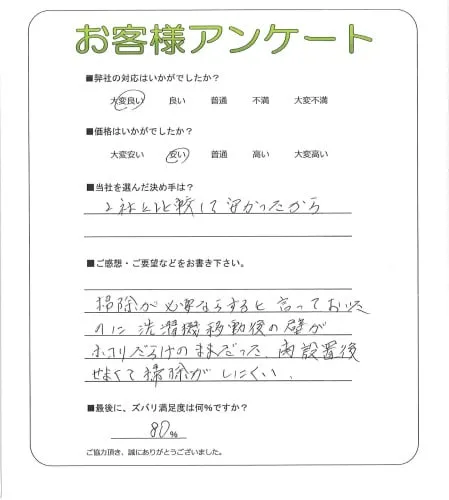 お客様アンケート
■弊社の対応はいかがでしたか?
大変良い 良い 普通 不満 大変不満
■価格はいかがでしたか?
大変安い 安い 普通 高い 大変高い
■当社を選んだ決め手は?
2社と比較して安かったから
■ご感想・ご要望などをお書き下さい。
掃除が必要ならすると言っておいた
のに洗濯機移動後の壁が
ホコリだらけのままだった。再設置後
せまくて掃除がしにくい。
■最後に、ズバリ満足度は何%ですか?
80%
ご協力頂き、誠にありがとうございました。